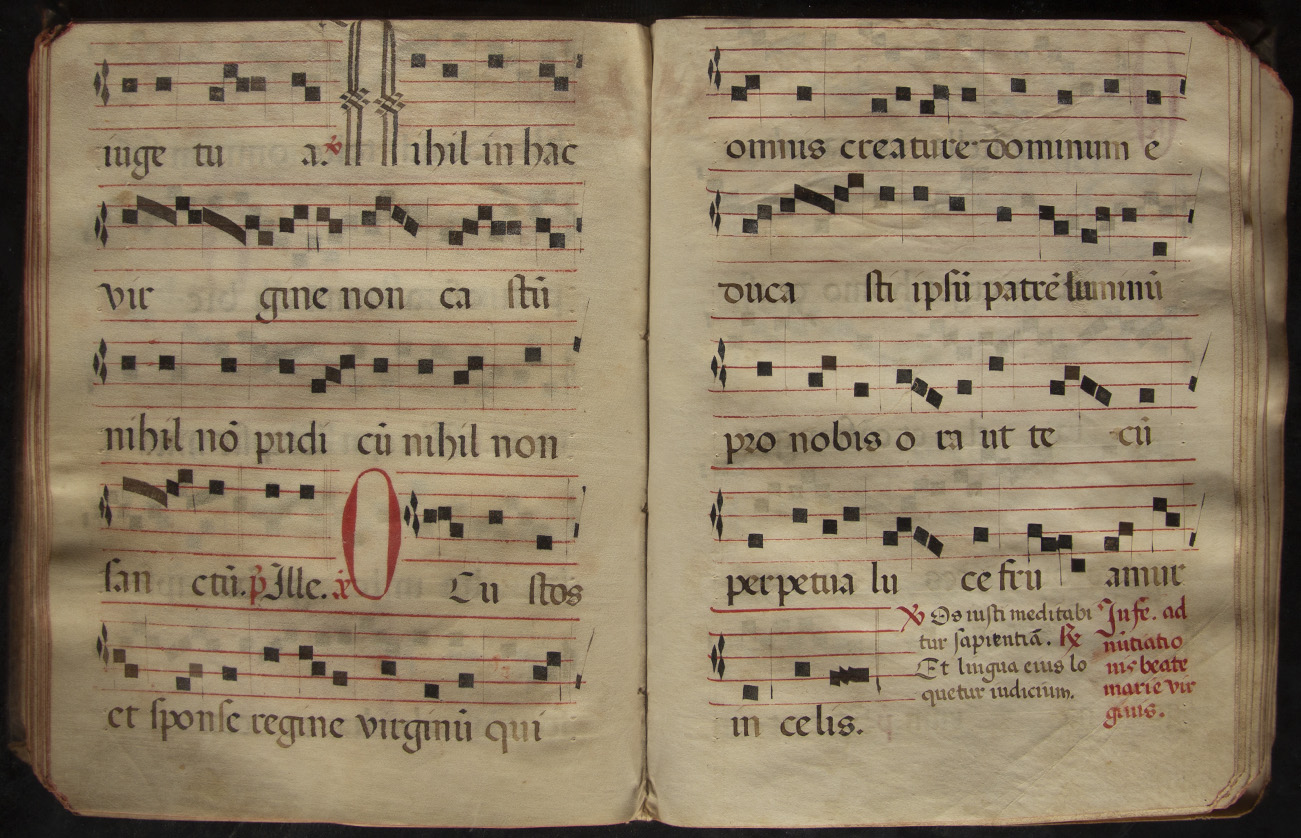 iuge tu a. ℣ Nihil in hac
vir gine non ca stū
nihil nō pudi cū nihil non
san ctū. p̄ Ille. O Cu stos
et sponse regine virginū qui
omnis creature dominum e
duca sti ipsū patrē luminū
pro nobis o ra ut te cū
perpetua lu ce fru amur
in celis.
℣ Os iusti meditabi
tur sapientiā. ℟
Et lingua eius lo
quetur iudicium.
In fe. ad
nūtiatio
nis beate
marie vir
ginis.